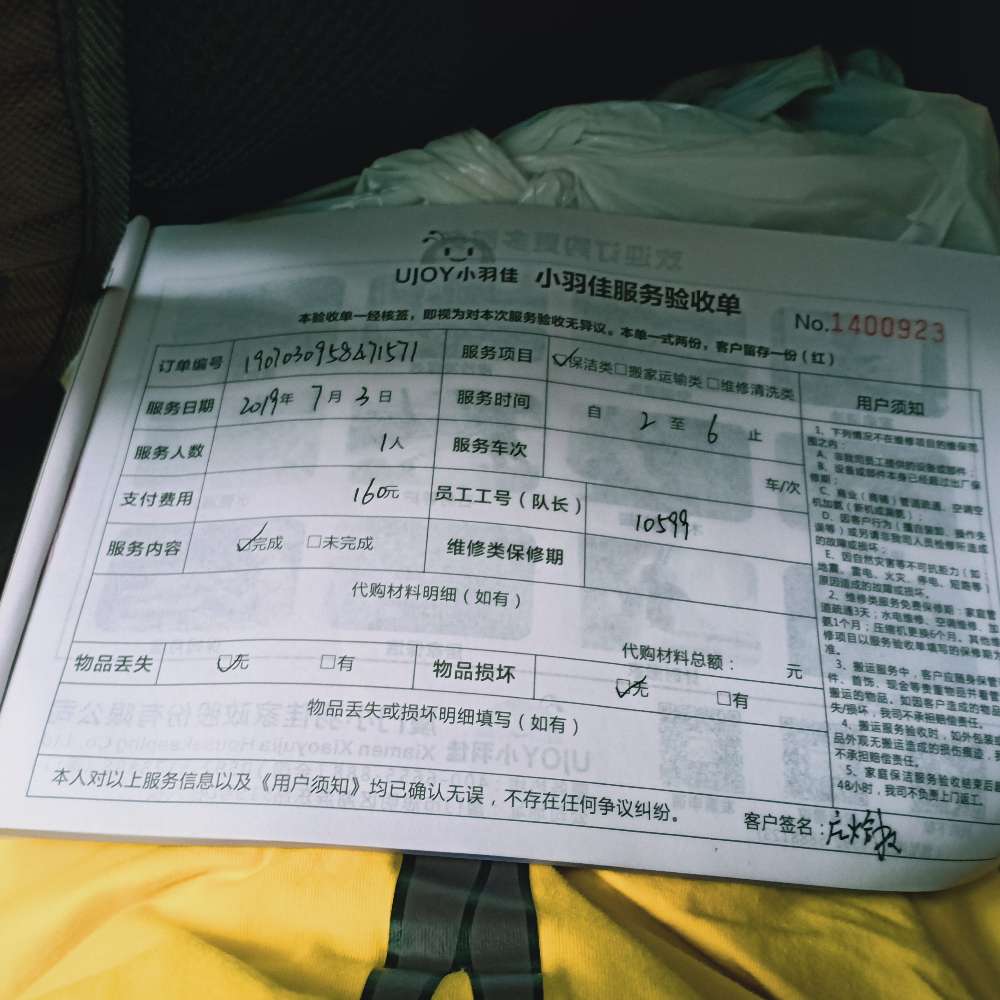 UJOY小羽佳 小羽佳服务验收单
No.1400923
本验收单一经核签，即视为对本次服务验收无异议。本单一式两份，客户留存一份（红）
订单编号 1907030958471571 服务项目 保洁类 □搬家运输类 □维修清洗类
服务日期 2019年 7月 3日 服务时间 自 2 至 6 止
服务人数 1人 服务车次 车/次
支付费用 160元 员工工号（队长） 10599
服务内容 完成 □未完成 维修类保修期
代购材料明细（如有）
代购材料总额： 元
物品丢失 无 □有 物品损坏 无 □有
物品丢失或损坏明细填写（如有）
本人对以上服务信息以及《用户须知》均已确认无误，不存在任何争议纠纷。
客户签名：
用户须知
1、下列情况不在维修项目的维保范
围之内：
A、非我司员工提供的设备或部件；
B、设备或部件本身已经超过出厂保
修期；
C、商业（商铺）管道疏通、空调空
机加氨（新机或漏氨）；
D、因客户行为（擅自装卸、操作失
误等）或另请非我司人员检修所造成
的故障或损坏；
E、因自然灾害等不可抗距力（如：
地震、雷电、火灾、停电、短路等）
原因造成的故障或损坏。
2、维修类服务免费保修期：家庭管
道疏通3天；水电维修、空调维修、加
氨1个月；压缩机更换6个月。其他维
修项目以服务验收单填写的保修期为
准。
3、搬运服务中，客户应随身保管
件、首饰、现金等贵重物品并看管
搬运的物品。如因客户造成的物品
失/损坏，我司不承担赔偿责任。
4、搬运服务验收时，如外包装或
品外观无搬运造成的损伤痕迹，我
不承担赔偿责任。
5、家庭保洁服务验收结束后超
48小时，我司不负责上门返工。